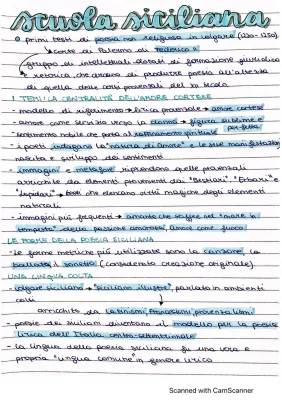 scuola siciliana
o primi testi di poesia non religiosa in volgare (1230-1250)
↳ corte di Palermo di Federico II
gruppo di intellettuali dotati di formazione giuridica
e retorica, che di produrre poesia all'altezza
di quella delle corti provenzali del XII secolo
I TEMI: LA CENTRALITÀ DELL'AMORE CORTESE
- modello di riferimento → lirica provenzale → amore cortese
- amore come servizio verso la donna → figura sublime e perfetta
- sentimento nobile che porta al raffinamento spirituale
- i poeti indagano la "natura di amore" e le sue manifestazioni
nascita e sviluppo dei sentimenti
- immagini e metafore riprendono quelle provenzali
arricchite da elementi provenienti dai "Bestiari", "Erbari" e
"lapidari" → che elencano virtù magiche degli elementi
naturali
- immagini più frequenti → amante che soffre nel "mare in
tempesta" della passione amorosa, amore come fuoco
LE FORME DELLA POESIA SICILIANA
- le forme metriche più utilizzate sono la canzone, la
ballata, il sonetto (considerato creazione originale)
UNA LINGUA COLTA
- volgare siciliano → "siciliano illustre", parlato in ambienti
colti
↓
arricchito da latinismi, francesismi, provenzalismi
- poesie dei siciliani diventano il modello per la poesia
lirica dell'Italia centro-settentrionale
- la lingua della poesia siciliana fu una vera e
propria "lingua comune" in genere lirico
Scanned with CamScanner